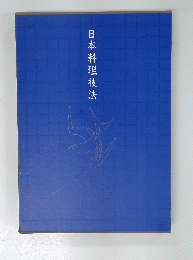 日本料理技法